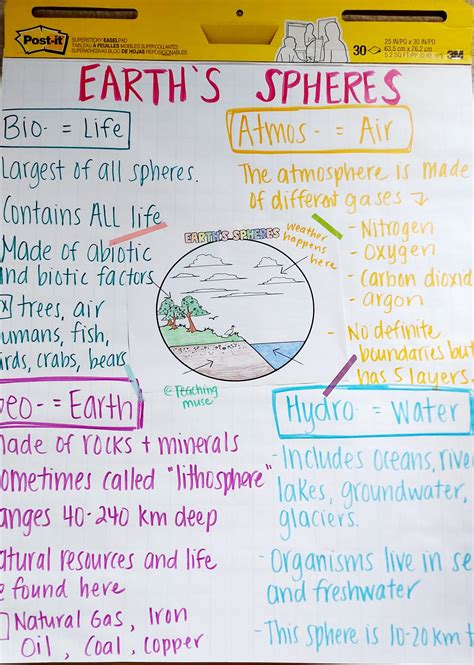 Post-it
SUPERSTICKY EASEL PAD
TABLEAU À FEUILLES MOBILES SUPERCOLLANTES
SUPERADHESIVAS BLOC DE HOJAS REPOSICIONABLES
30
25 IN/PO x 30 IN/PO
63.5 cm x 76.2 cm
3M
EARTH'S SPHERES
Bio- = Life
Largest of all spheres.
Contains All life
Made of abiotic
and biotic factors
trees, air
umans, fish,
irds, crabs, bears
Atmos- = Air
The atmosphere is made
of different gases
- Nitrogen
- Oxygen
- Carbon dioxid
- argon
- No definite
boundaries but
has 5 layers.
EARTH'S SPHERES
Weather
happens
here
@Teaching
muse
Geo- = Earth
made of rocks + minerals
ometimes called "lithosphere"
anges 40-240 km deep
atural resources and life
e found here
Natural Gas, Iron
Oil, Coal, Copper
Hydro- = Water
- Includes oceans, rive
lakes, groundwater,
glaciers.
- Organisms live in se
and freshwater
- This sphere is 10-20 km